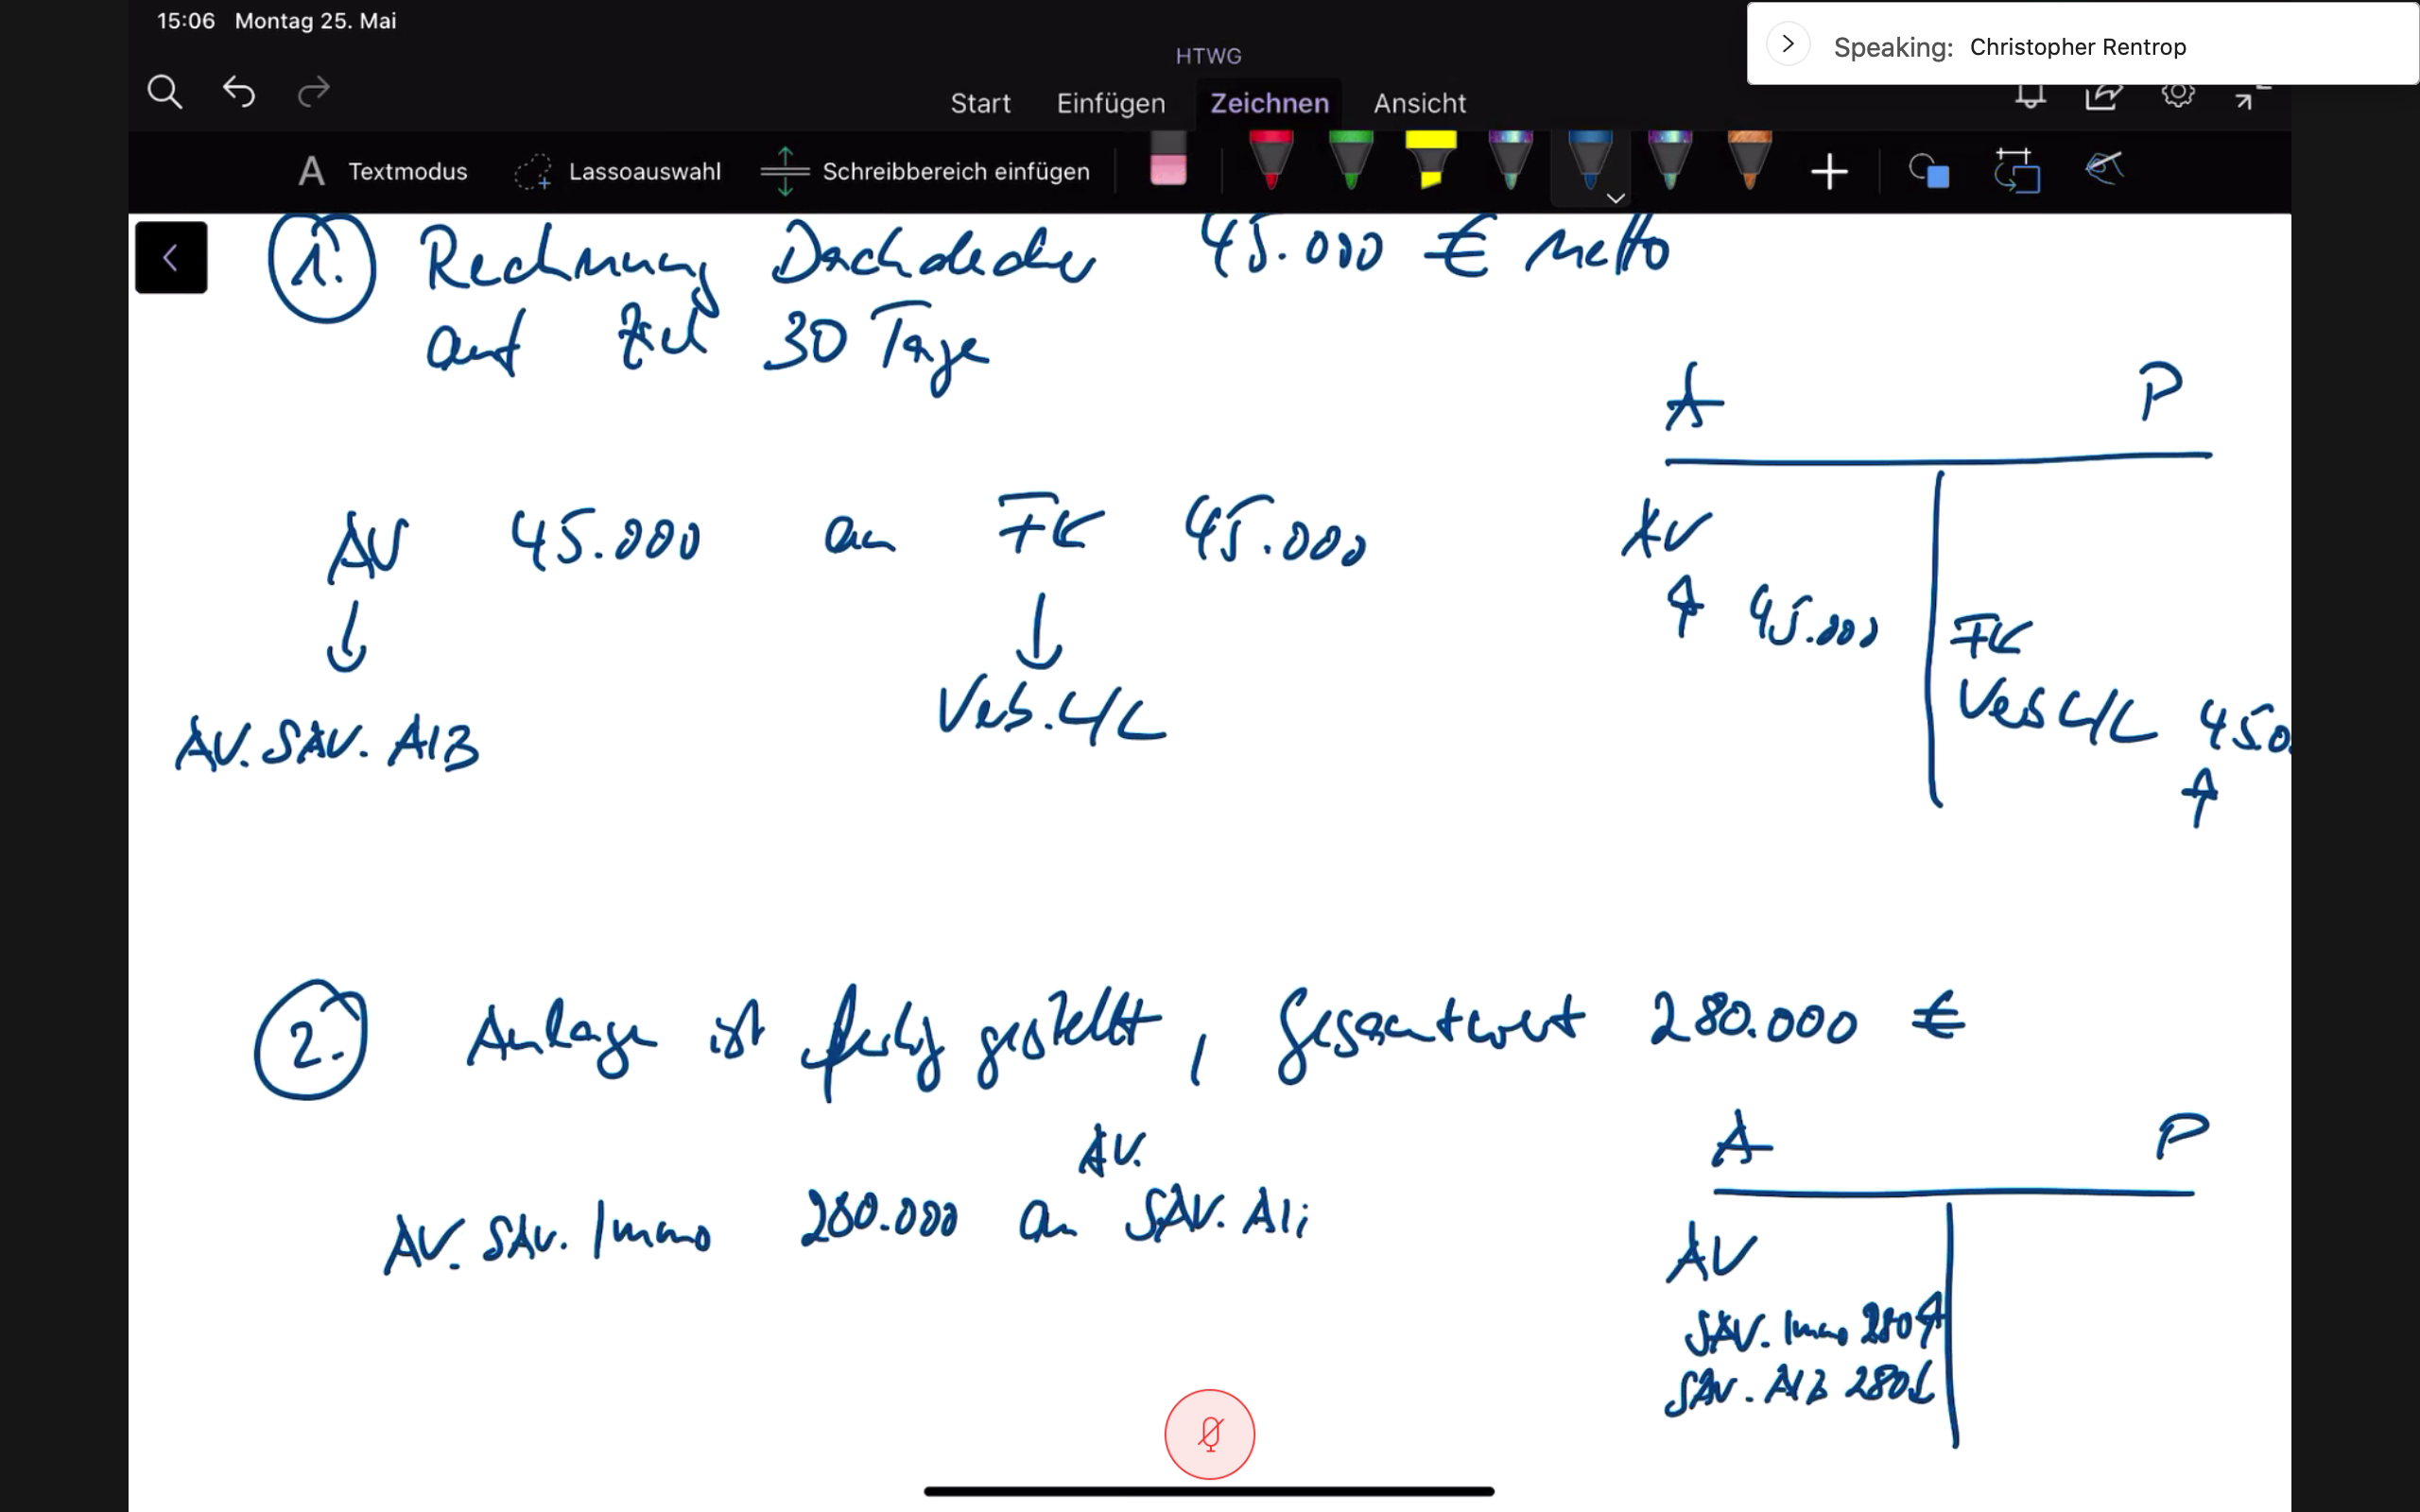 15:06 Montag 25. Mai
Speaking: Christopher Rentrop
HTWG
Start Einfügen Zeichnen Ansicht
A Textmodus Lassoauswahl Schreibbereich einfügen
1. Rechnung Dachdecker 45.000 € netto
auf Ziel 30 Tage
A P
AV 45.000 an FK 45.000
AV
45.000
FK
Verb. L/L
Verb L/L 450
AV. SAV. AIB
2. Anlage ist fertig gestellt, Gesamtwert 280.000 €
A P
AV.
AV. SAV. Immo 280.000 an SAV. AIi
AV
SAV. Immo 280
SAV. AIB 280